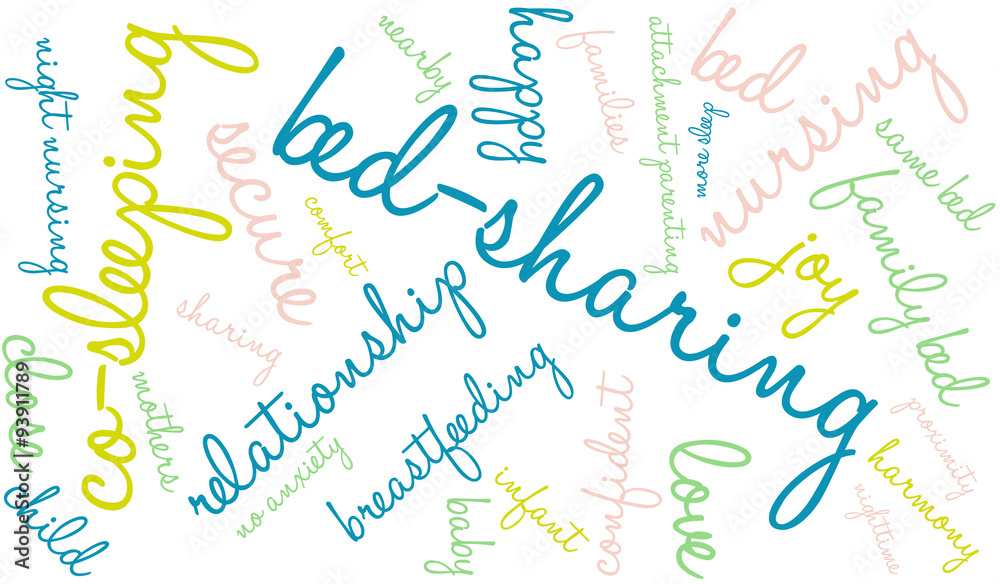 night nursing
co-sleeping
nearby
happy
families
attachment parenting
bed
more sleep
nursing
same bed
bed-sharing
secure
comfort
family bed
joy
sharing
relationship
close
mothers
breastfeeding
confident
love
proximity
harmony
nighttime
no anxiety
infant
baby
child
Adobe Stock | #93911789
Adobe Stock